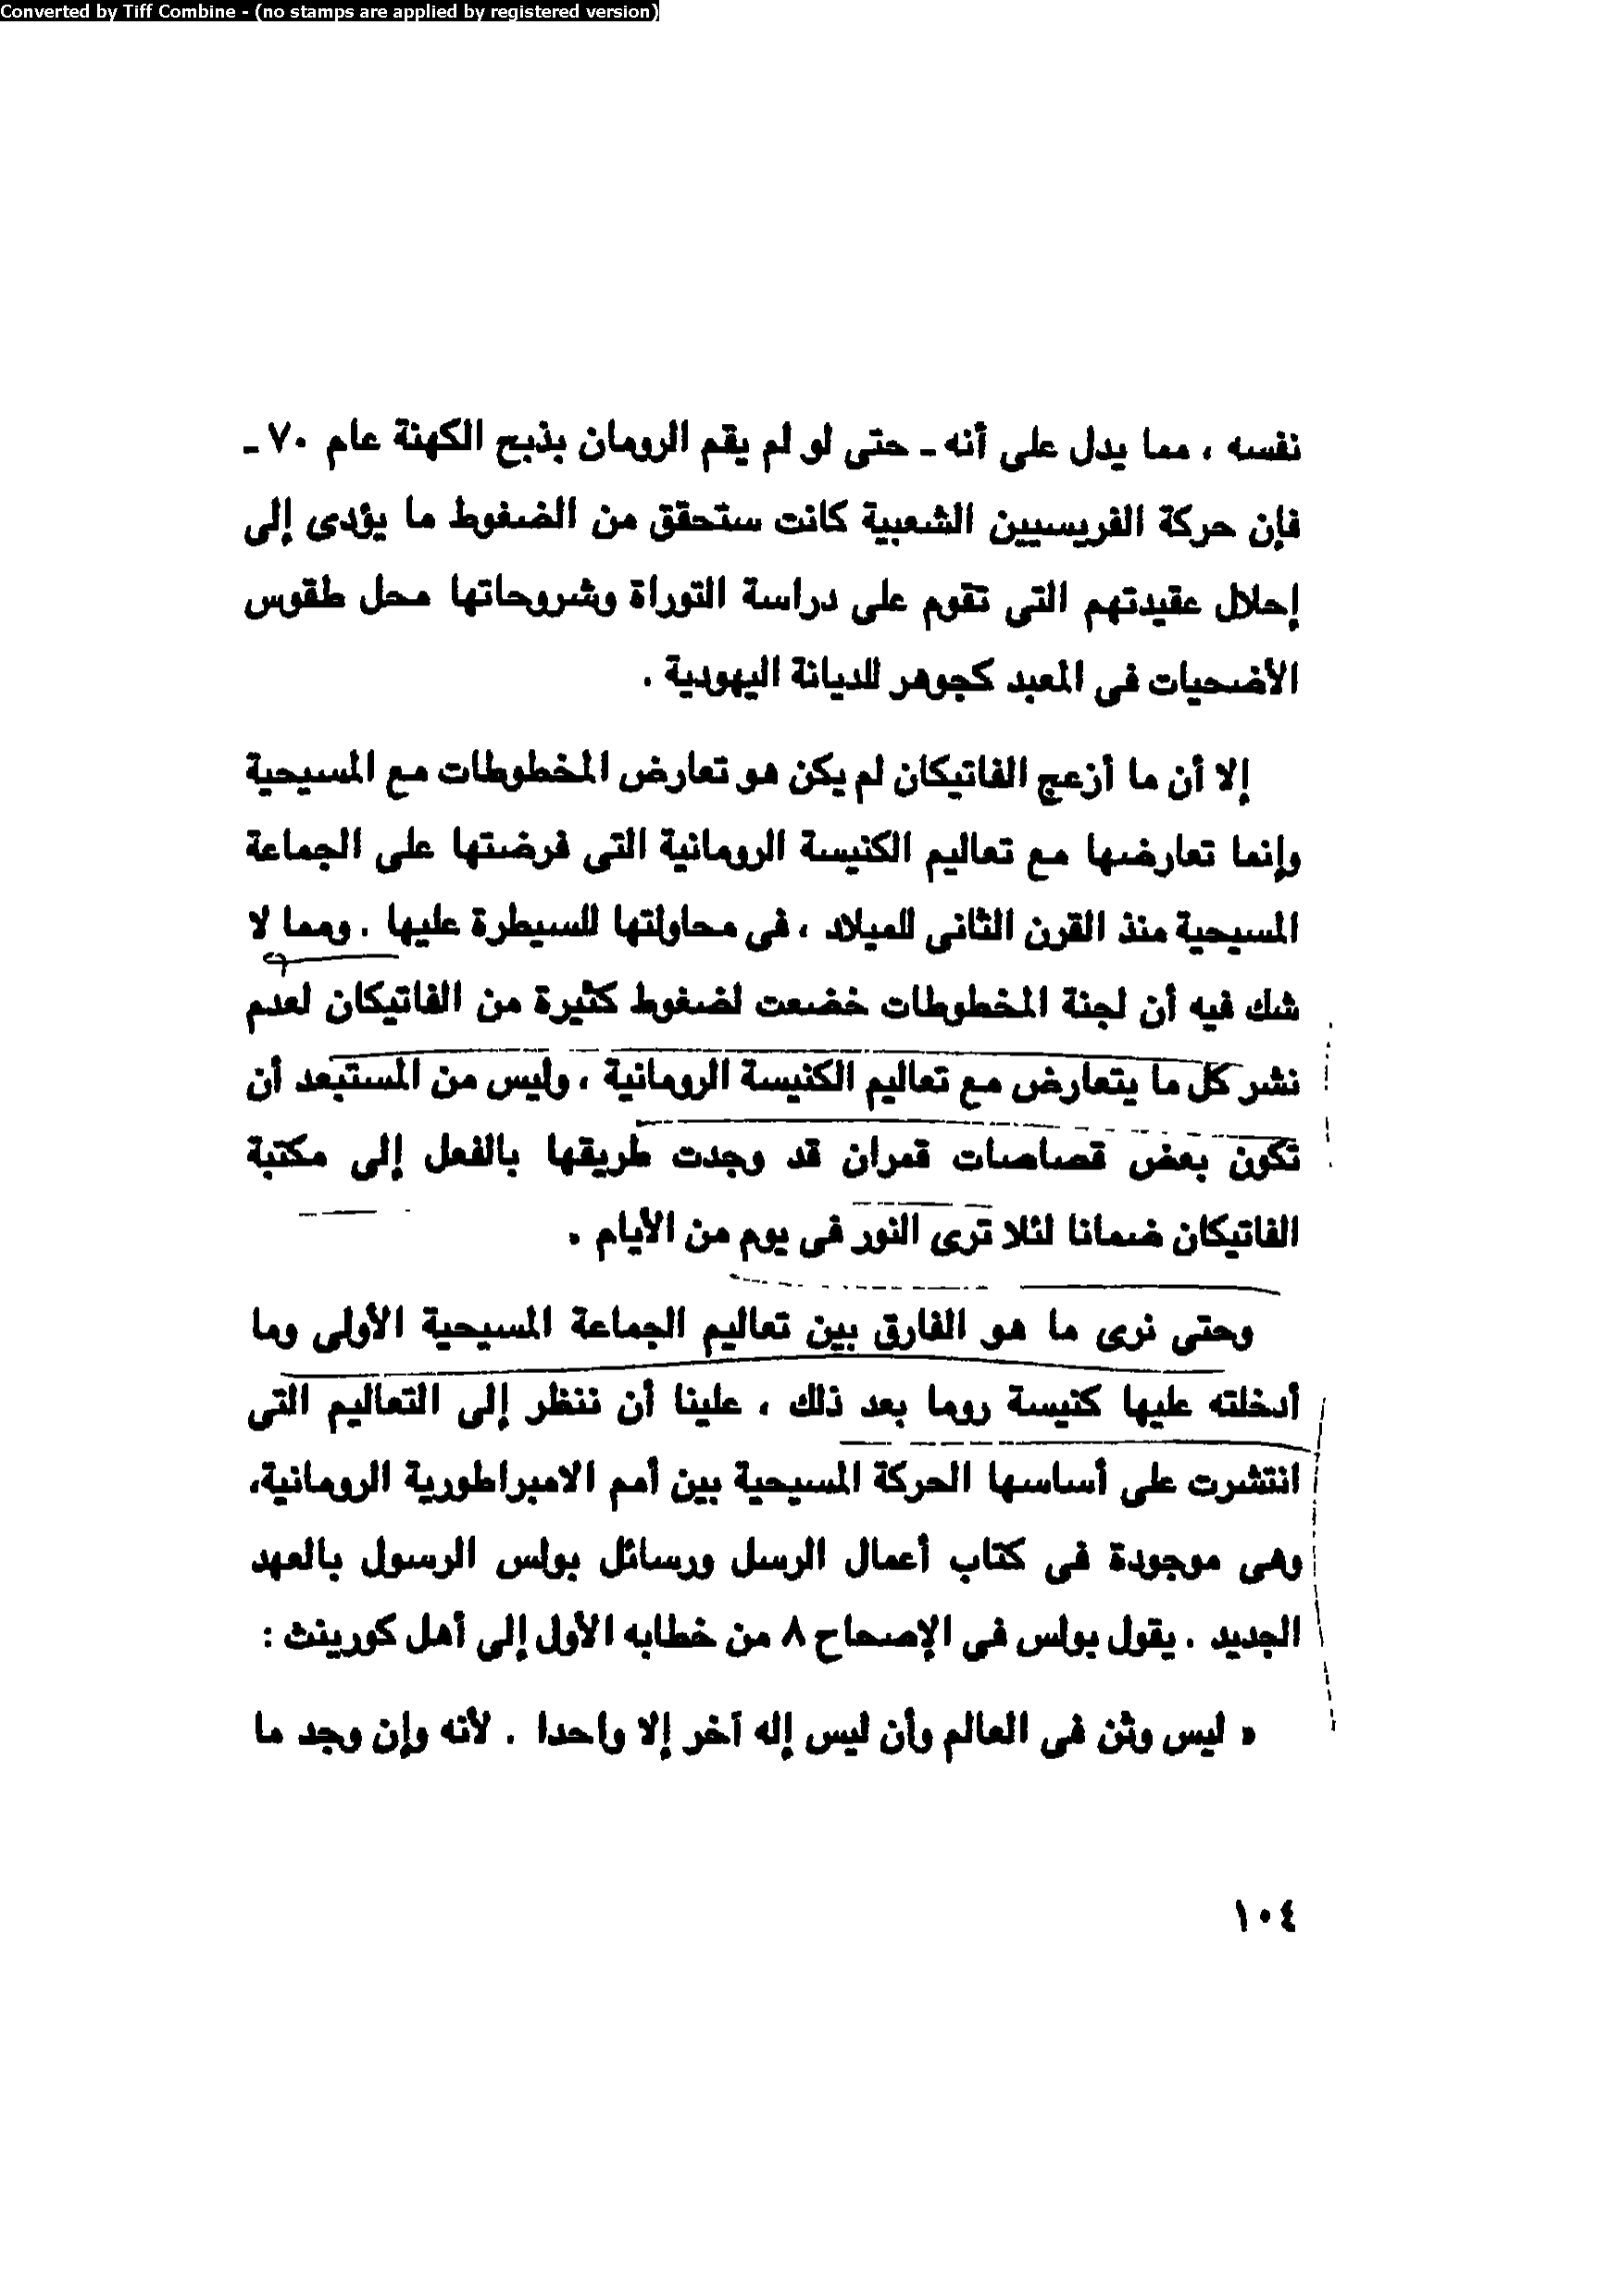 Converted by Tiff Combine - (no stamps are applied by registered version)
نفسه ، مما يدل على أنه ـ حتى لو لم يقم الرومان بذبح الكهنة عام ٧٠ ـ
فإن حركة الفريسيين الشعبية كانت ستحقق من الضغوط ما يؤدى إلى
إحلال عقيدتهم التى تقوم على دراسة التوراة وشروحاتها محل طقوس
الأضحيات فى المعبد كجوهر للديانة اليهودية .
إلا أن ما أزعج الفاتيكان لم يكن هو تعارض المخطوطات مع المسيحية
وإنما تعارضها مع تعاليم الكنيسة الرومانية التى فرضتها على الجماعة
المسيحية منذ القرن الثانى للميلاد ، فى محاولتها للسيطرة عليها . ومما لا
شك فيه أن لجنة المخطوطات خضعت لضغوط كثيرة من الفاتيكان لعدم
نشر كل ما يتعارض مع تعاليم الكنيسة الرومانية ، وليس من المستبعد أن
تكون بعض قصاصات قمران قد وجدت طريقها بالفعل إلى مكتبة
الفاتيكان ضمانا لئلا ترى النور فى يوم من الأيام .
وحتى نرى ما هو الفارق بين تعاليم الجماعة المسيحية الأولى وما
أدخلته عليها كنيسة روما بعد ذلك ، علينا أن ننظر إلى التعاليم التى
انتشرت على أساسها الحركة المسيحية بين أمم الامبراطورية الرومانية،
وهى موجودة فى كتاب أعمال الرسل ورسائل بولس الرسول بالعهد
الجديد . يقول بولس فى الإصحاح ٨ من خطابه الأول إلى أهل كورينث :
« ليس وثن فى العالم وأن ليس إله آخر إلا واحدا . لأنه وإن وجد ما
١٠٤